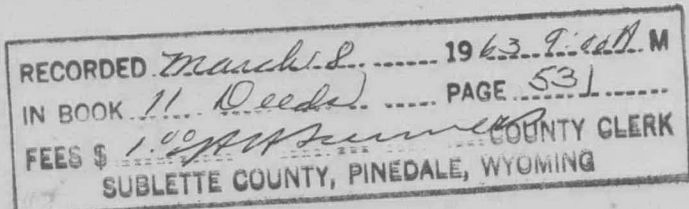 RECORDED March 18 1963 9:00 A M
IN BOOK 11 Deeds PAGE 531
FEES $ 1.00 COUNTY CLERK
SUBLETTE COUNTY, PINEDALE, WYOMING